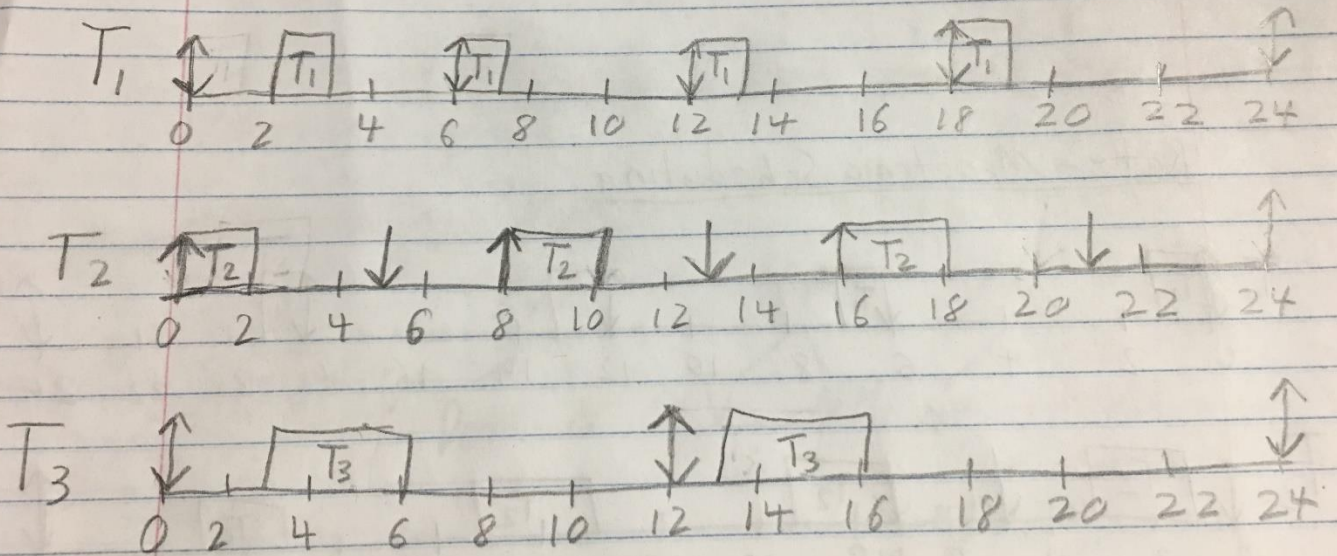 T1 T1 T1 T1 T1
0 2 4 6 8 10 12 14 16 18 20 22 24
T2 T2 T2 T2
0 2 4 6 8 10 12 14 16 18 20 22 24
T3 T3 T3
0 2 4 6 8 10 12 14 16 18 20 22 24